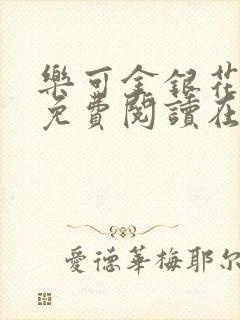 樂可金銀花
免費閱讀在
愛德華梅耶爾